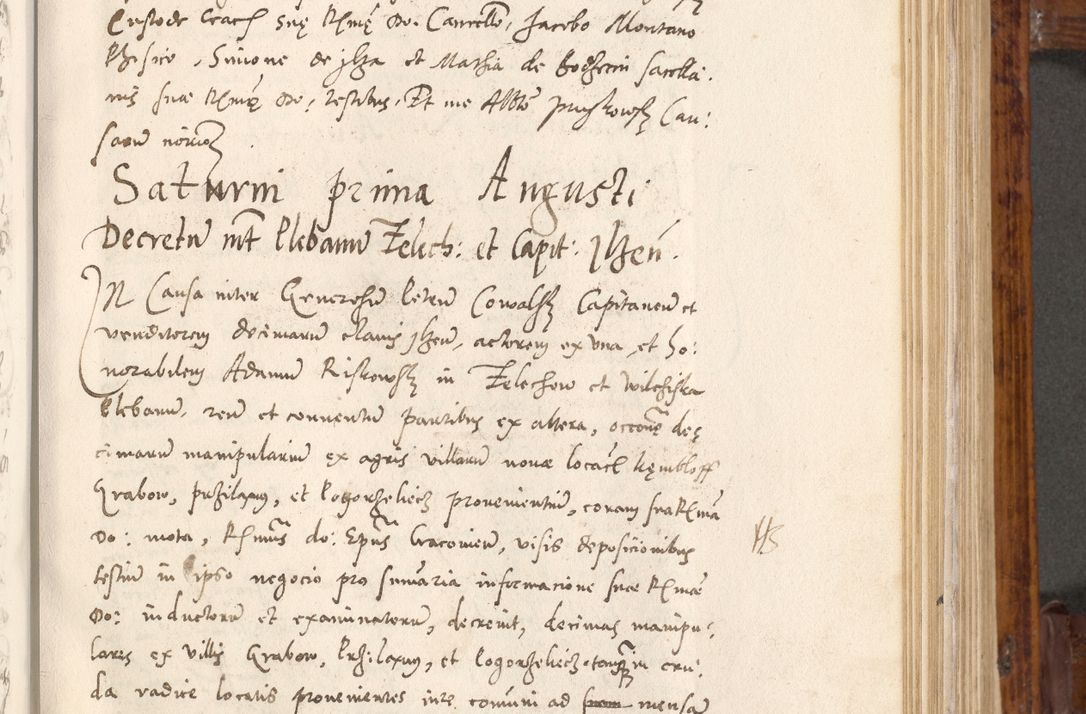 Custode Crac: suę Rmę Do: Cancello, Jacobo Montano
Phisico, Simone de Jlza et Mathia de Bodzecin sacella:
nis suae Rmę Do, testibus, Et me Albto Pruskowsky Cau:
sarum norio
Saturni prima Augusti
Decretu int Plebanu Zelech: et Capit: Jlzen.
IN Causa inter Generosu Petru Cowalsky Capitaneu et
venditorem decimaru clavis Jlzen, actorem ex una, et ho:
norabilem Adamu Riskowsky in Zelechow et Wilchiska
Plebanu, reu et conventu partibus ex altera, occone de
cimaru manipulariu ex agris villaru novae locac Kembloff
Grabow, Przilaxng, et Pogorzeliecz provenientiu, coram sua Rma
Do: mota, Rsmus do: Epus Cracovien, visis deposicionibus
testiu in ipso negocio pro sumaria informacione suae Rmae
Do: inductoru et examinatoru, decrevit, decimas manipu:
lares ex villis Grabow, Przilaxng, et Pogorzeliecz tanq in cru:
da radice locatis provenientes iure comuni ad mensa
HS